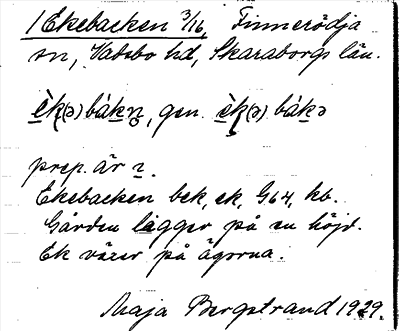 1 Ekebacken 3/16, Finnerödja
sn, Vadsbo hd, Skaraborgs län.
è̱k(ə)bákn̥, gen. è̱k(ə)bákə
prep. är
Ekebacken bek, ek, G64, kb.
Gården ligger på en höjd.
Ek växer på ägorna.
Maja Bergstrand 1929.